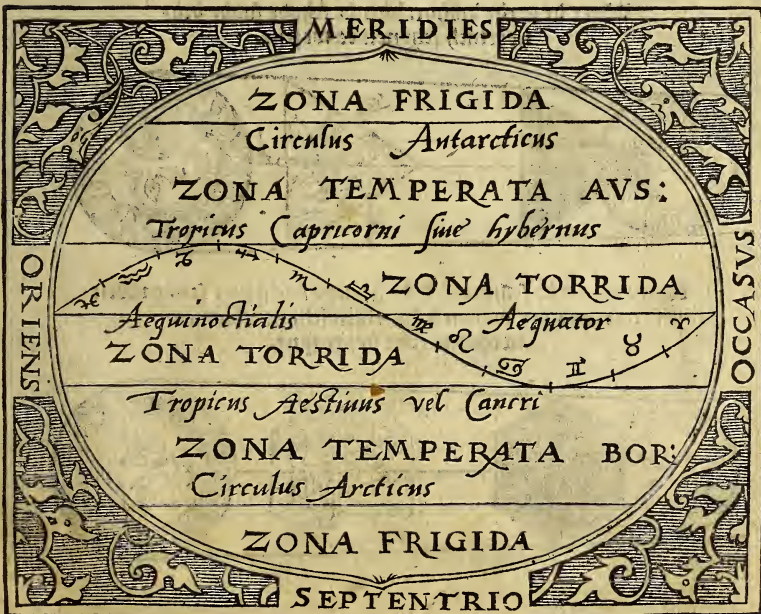 MERIDIES
ZONA FRIGIDA
Circulus Antarcticus
ZONA TEMPERATA AVS:
Tropicus Capricorni siue hybernus
ORIENS
OCCASVS
♓ ♒ ♑ ♐ ♏ ♎ ZONA TORRIDA
Aequinoctialis ♍ ♌ Aequator ♉ ♈
ZONA TORRIDA ♋ ♊
Tropicus Aestiuus vel Cancri
ZONA TEMPERATA BOR:
Circulus Arcticus
ZONA FRIGIDA
SEPTENTRIO